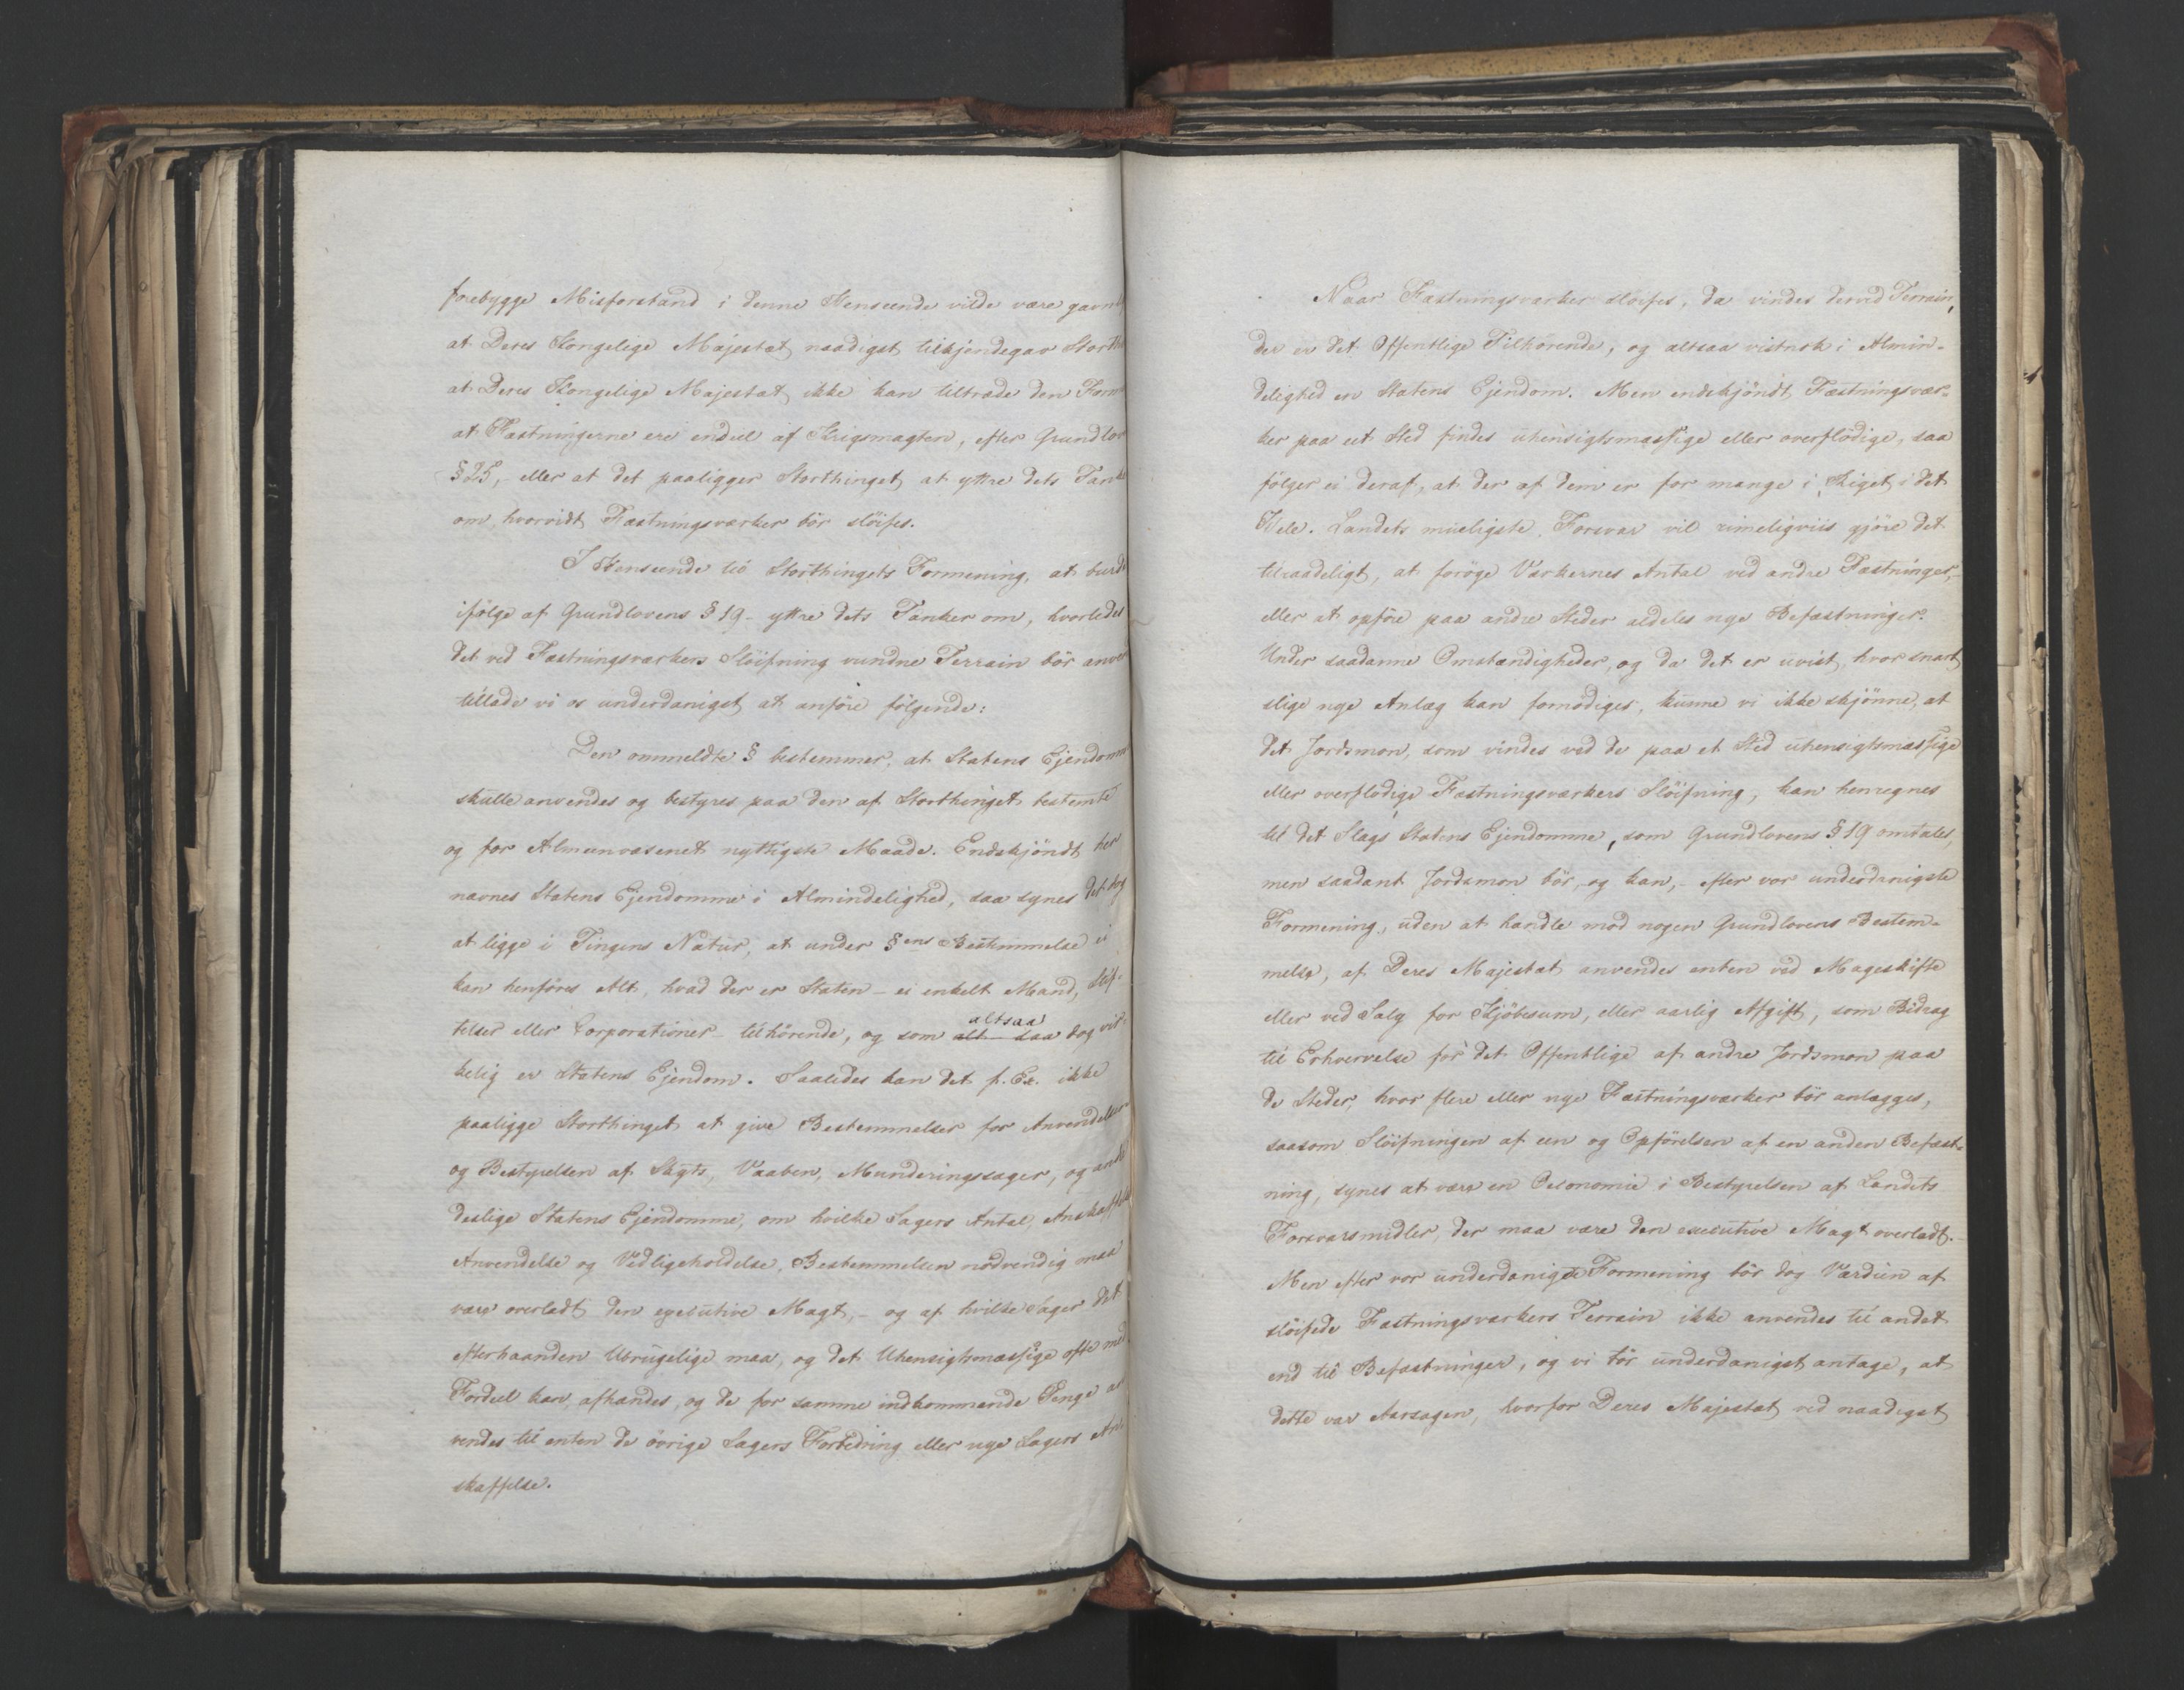 forebygge Misforstand i denne Henseende vilde være gavn
at Deres Kongelige Majestæt naadigst tilkjendegav Storth
at Deres Kongelige Majestæt ikke kan tiltræde den Form
at Fæstningerne ere endeel af Krigsmagten, efter Grundlov
§ 25, eller at det paaligger Storthinget at yttre dets Tank
om, hvorvidt Fæstningsværker bör slöifes.
I Henseende til Storthingets Formening, at burde
ifölge af Grundlovens § 19 - yttre dets Tanker om, hvorledes
det ved Fæstningsværkers Slöifning vundne Terrain bör anven
tillade vi os underdanigst at anföre fölgende:
Den ommeldte § bestemmer, at Statens Ejendomme
skulle anvendes og bestyres paa den af Storthinget bestemte
og for Almeenvæsenet nyttigste Maade. Endskjöndt her
nævnes Statens Ejendomme i Almindelighed, saa synes det dog
at ligge i Tingens Natur, at under §ens Bestemmelse ei
kan henföres Alt, hvad der er Staten - ei enkelt Mand, Stif-
telser eller Corporationer - tilhörende, og som alt saa altsaa dog vir-
kelig er Statens Ejendom. Saaledes kan det f. Ex. ikke
paaligge Storthinget at give Bestemmelser for Anvendelsen
og Bestyrelsen af Skyts, Vaaben, Munderingssager, og andre
deslige Statens Ejendomme, om hvilke Sagers Antal, Anskaffelse
Anvendelse og Vedligeholdelse, Bestemmelsen nödvendig maa
være overladt den executive Magt, - og af hvilke Sager det
efterhaanden Ubrugelige maa, og det Uhensigtsmæssige ofte med
Fordeel kan, afhændes, og de for samme indkommende Penge an
vendes til enten de övrige Sagers Forbedring eller nye Sagers An
skaffelse.
Naar Fæstningsværker slöifes, da vindes derved Terrain,
der er det Offentlige Tilhörende, og altsaa vistnok i Almin-
delighed en Statens Ejendom. Men endskjöndt Fæstningsvær-
ker paa eet Sted findes uhensigtsmæssige eller overflödige, saa
fölger ei deraf, at der af dem er for mange i Riget i det
Hele. Landets mueligste Forsvar vil rimeligviis gjöre det
tilraadeligt, at foröge Værkernes Antal ved andre Fæstninger,
eller at opföre paa andre Steder aldeles nye Befæstninger.
Under saadanne Omstændigheder, og da det er uvist, hvor snart
slige nye Anlæg kan fornödiges, kunne vi ikke skjönne, at
det Jordsmon, som vindes ved de paa et Sted uhensigtsmæssige
eller overflödige Fæstningsværkers Slöifning, kan henregnes
til det Slags Statens Ejendomme, som Grundlovens § 19 omtaler,
men saadant Jordsmon bör, - og kan, - efter vor underdanigste
Formening, uden at handle mod nogen Grundlovens Bestem-
melse, af Deres Majestæt anvendes enten ved Mageskifte
eller ved Salg for Kjöbesum, eller aarlig Afgift, som Bidrag
til Erhvervelse for det Offentlige af andre Jordsmon paa
de Steder, hvor flere eller nye Fæstningsværker bör anlægges,
saasom Slöifningen af een og Opförelsen af en anden Befæst-
ning, synes at være en Oeconomie i Bestyrelsen af Landets
Forsvarsmidler, der maa være den executive Magt overladt. -
Men efter vor underdanigste Formening bör dog Værdien af
slöifede Fæstningsværkers Terrain ikke anvendes til andet
end til Befæstninger, og vi tör underdanigst antage, at
dette var Aarsagen, hvorfor Deres Majestæt ved naadigst